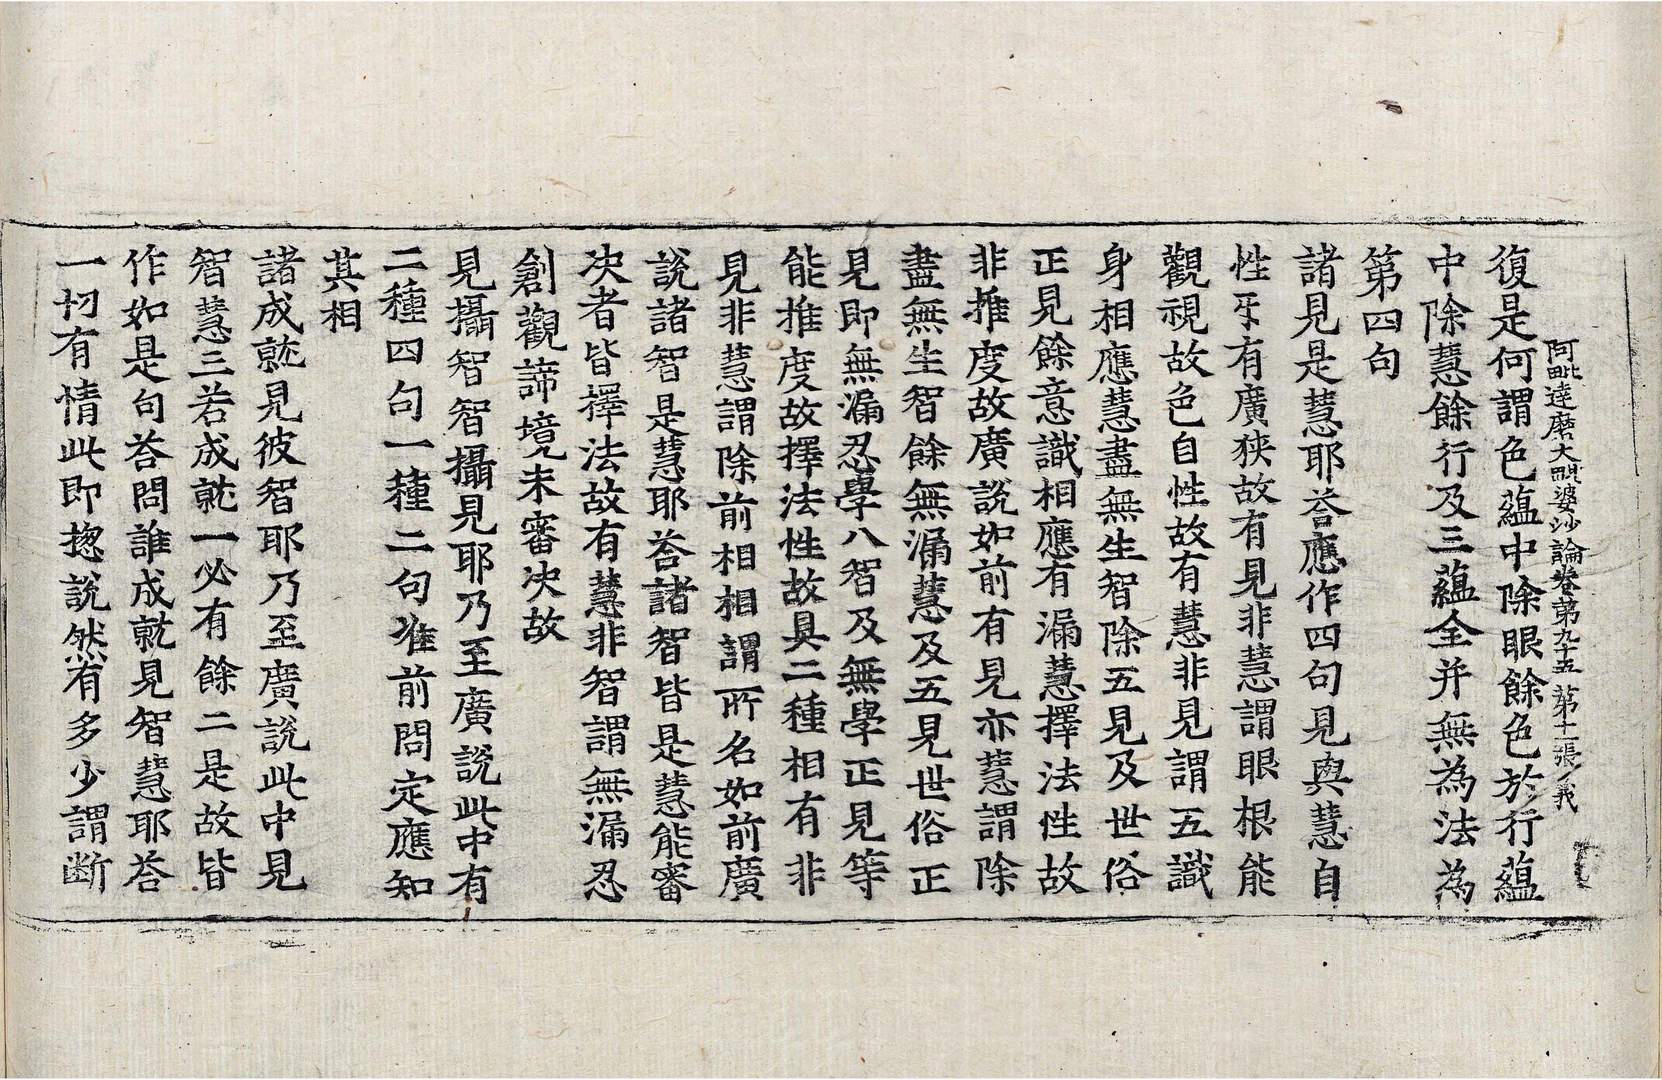 阿毗達磨大毗婆沙論卷第九十五 第十一張 我
復是何謂色蘊中除眼餘色於行蘊
中除慧餘行及三蘊全并無為法為
第四句
諸見是慧耶荅應作四句見與慧自
性㸦有廣狹故有見非慧謂眼根能
觀視故色自性故有慧非見謂五識
身相應慧盡無生智除五見及世俗
正見餘意識相應有漏慧擇法性故
非推度故廣說如前有見亦慧謂除
盡無生智餘無漏慧及五見世俗正
見即無漏忍學八智及無學正見等
能推度故擇法性故具二種相有非
見非慧謂除前相相謂所名如前廣
說諸智是慧耶荅諸智皆是慧能審
决者皆擇法故有慧非智謂無漏忍
創觀諦境未審决故
見攝智智攝見耶乃至廣說此中有
二種四句一種二句准前問定應知
其相
諸成就見彼智耶乃至廣說此中見
智慧三若成就一必有餘二是故皆
作如是句荅問誰成就見智慧耶荅
一切有情此即揔說然有多少謂断